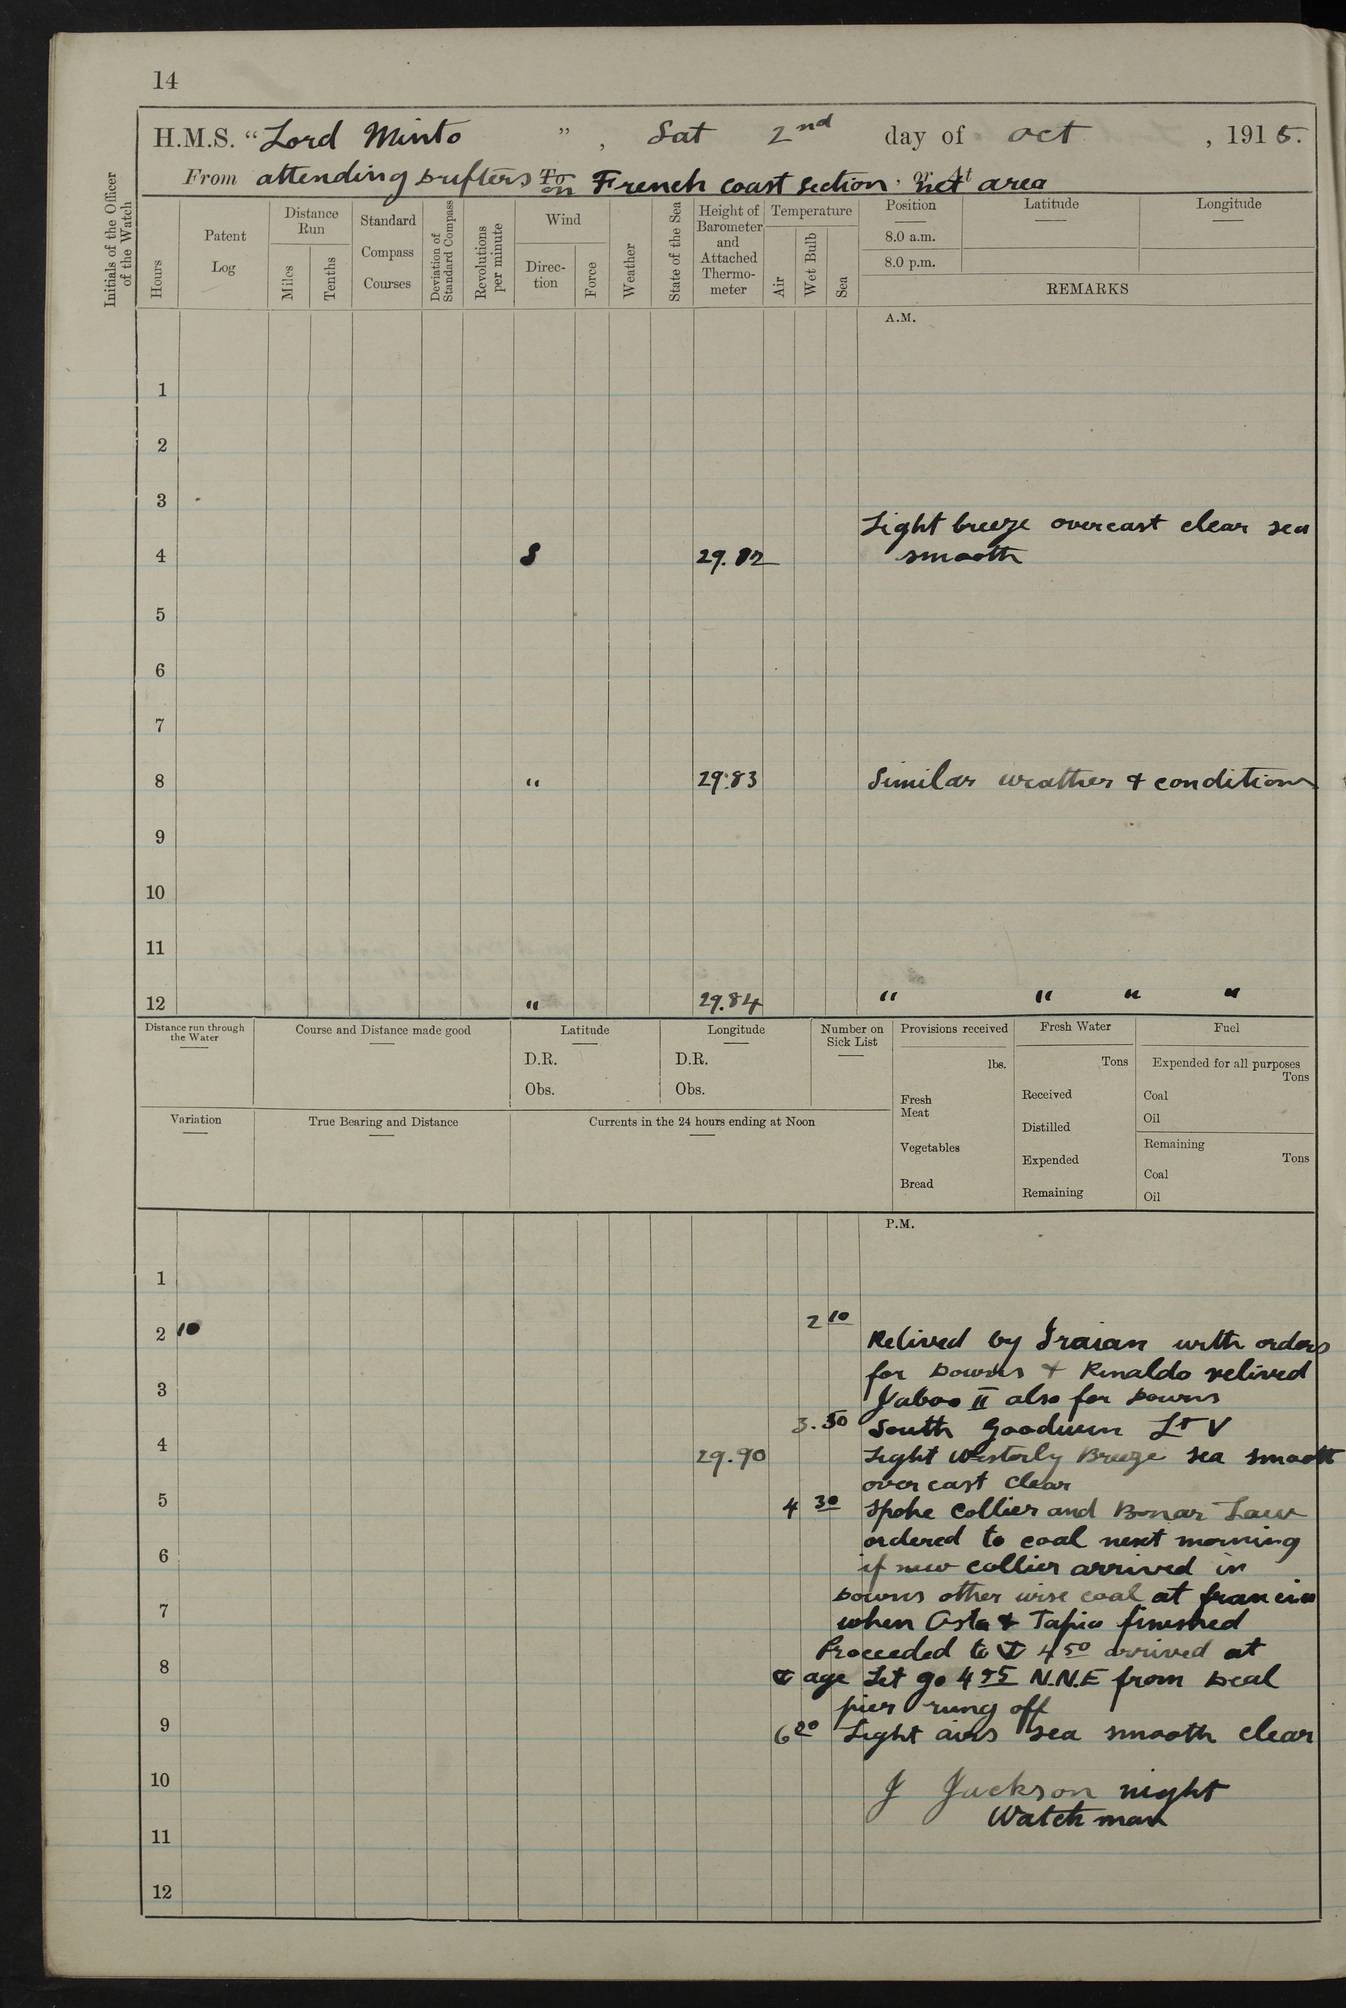 14
H.M.S. “Lord Minto ”, Sat 2nd day of Oct , 1915.
From attending Drifters on French coast section. net area
Initials of the Officer of the Watch
Hours
Patent Log
Distance Run
Miles
Tenths
Standard Compass Courses
Deviation of Standard Compass
Revolutions per minute
Wind
Direction
Force
Weather
State of the Sea
Height of Barometer and Attached Thermometer
Temperature
Air
Wet Bulb
Sea
Position
8.0 a.m.
8.0 p.m.
Latitude
Longitude
REMARKS
A.M.
1
2
3
Light breeze overcast clear sea
4 S 29.82 smooth
5
6
7
8 " 29.83 Similar weather & conditions
9
10
11
12 " 29.84 " " " "
Distance run through the Water
Course and Distance made good
Latitude
D.R.
Obs.
Longitude
D.R.
Obs.
Number on Sick List
Provisions received
lbs.
Fresh Meat
Vegetables
Bread
Fresh Water
Tons
Received
Distilled
Expended
Remaining
Fuel
Expended for all purposes
Tons
Coal
Oil
Remaining
Tons
Coal
Oil
Variation
True Bearing and Distance
Currents in the 24 hours ending at Noon
P.M.
1
2 10 2 10
Relived by Traian with orders
for Downs & Rinaldo relived
3
Yaboo II also for Downs
3.50 South Goodwin Lt V
4 29.90 Light Westerly Breeze sea smooth
overcast clear
5 4 30 Spoke Collier and Bonar Law
ordered to coal next morning
6 if new collier arrived in
Downs other wise coal at
7 when Asta & Tapio finished
Proceeded to ⚓ 4 50 arrived at
8 ⚓ age Let go 4 55 N.N.E from Deal
pier rung off
9 6 20 Light airs sea smooth clear
10 J Jackson night
Watch man
11
12